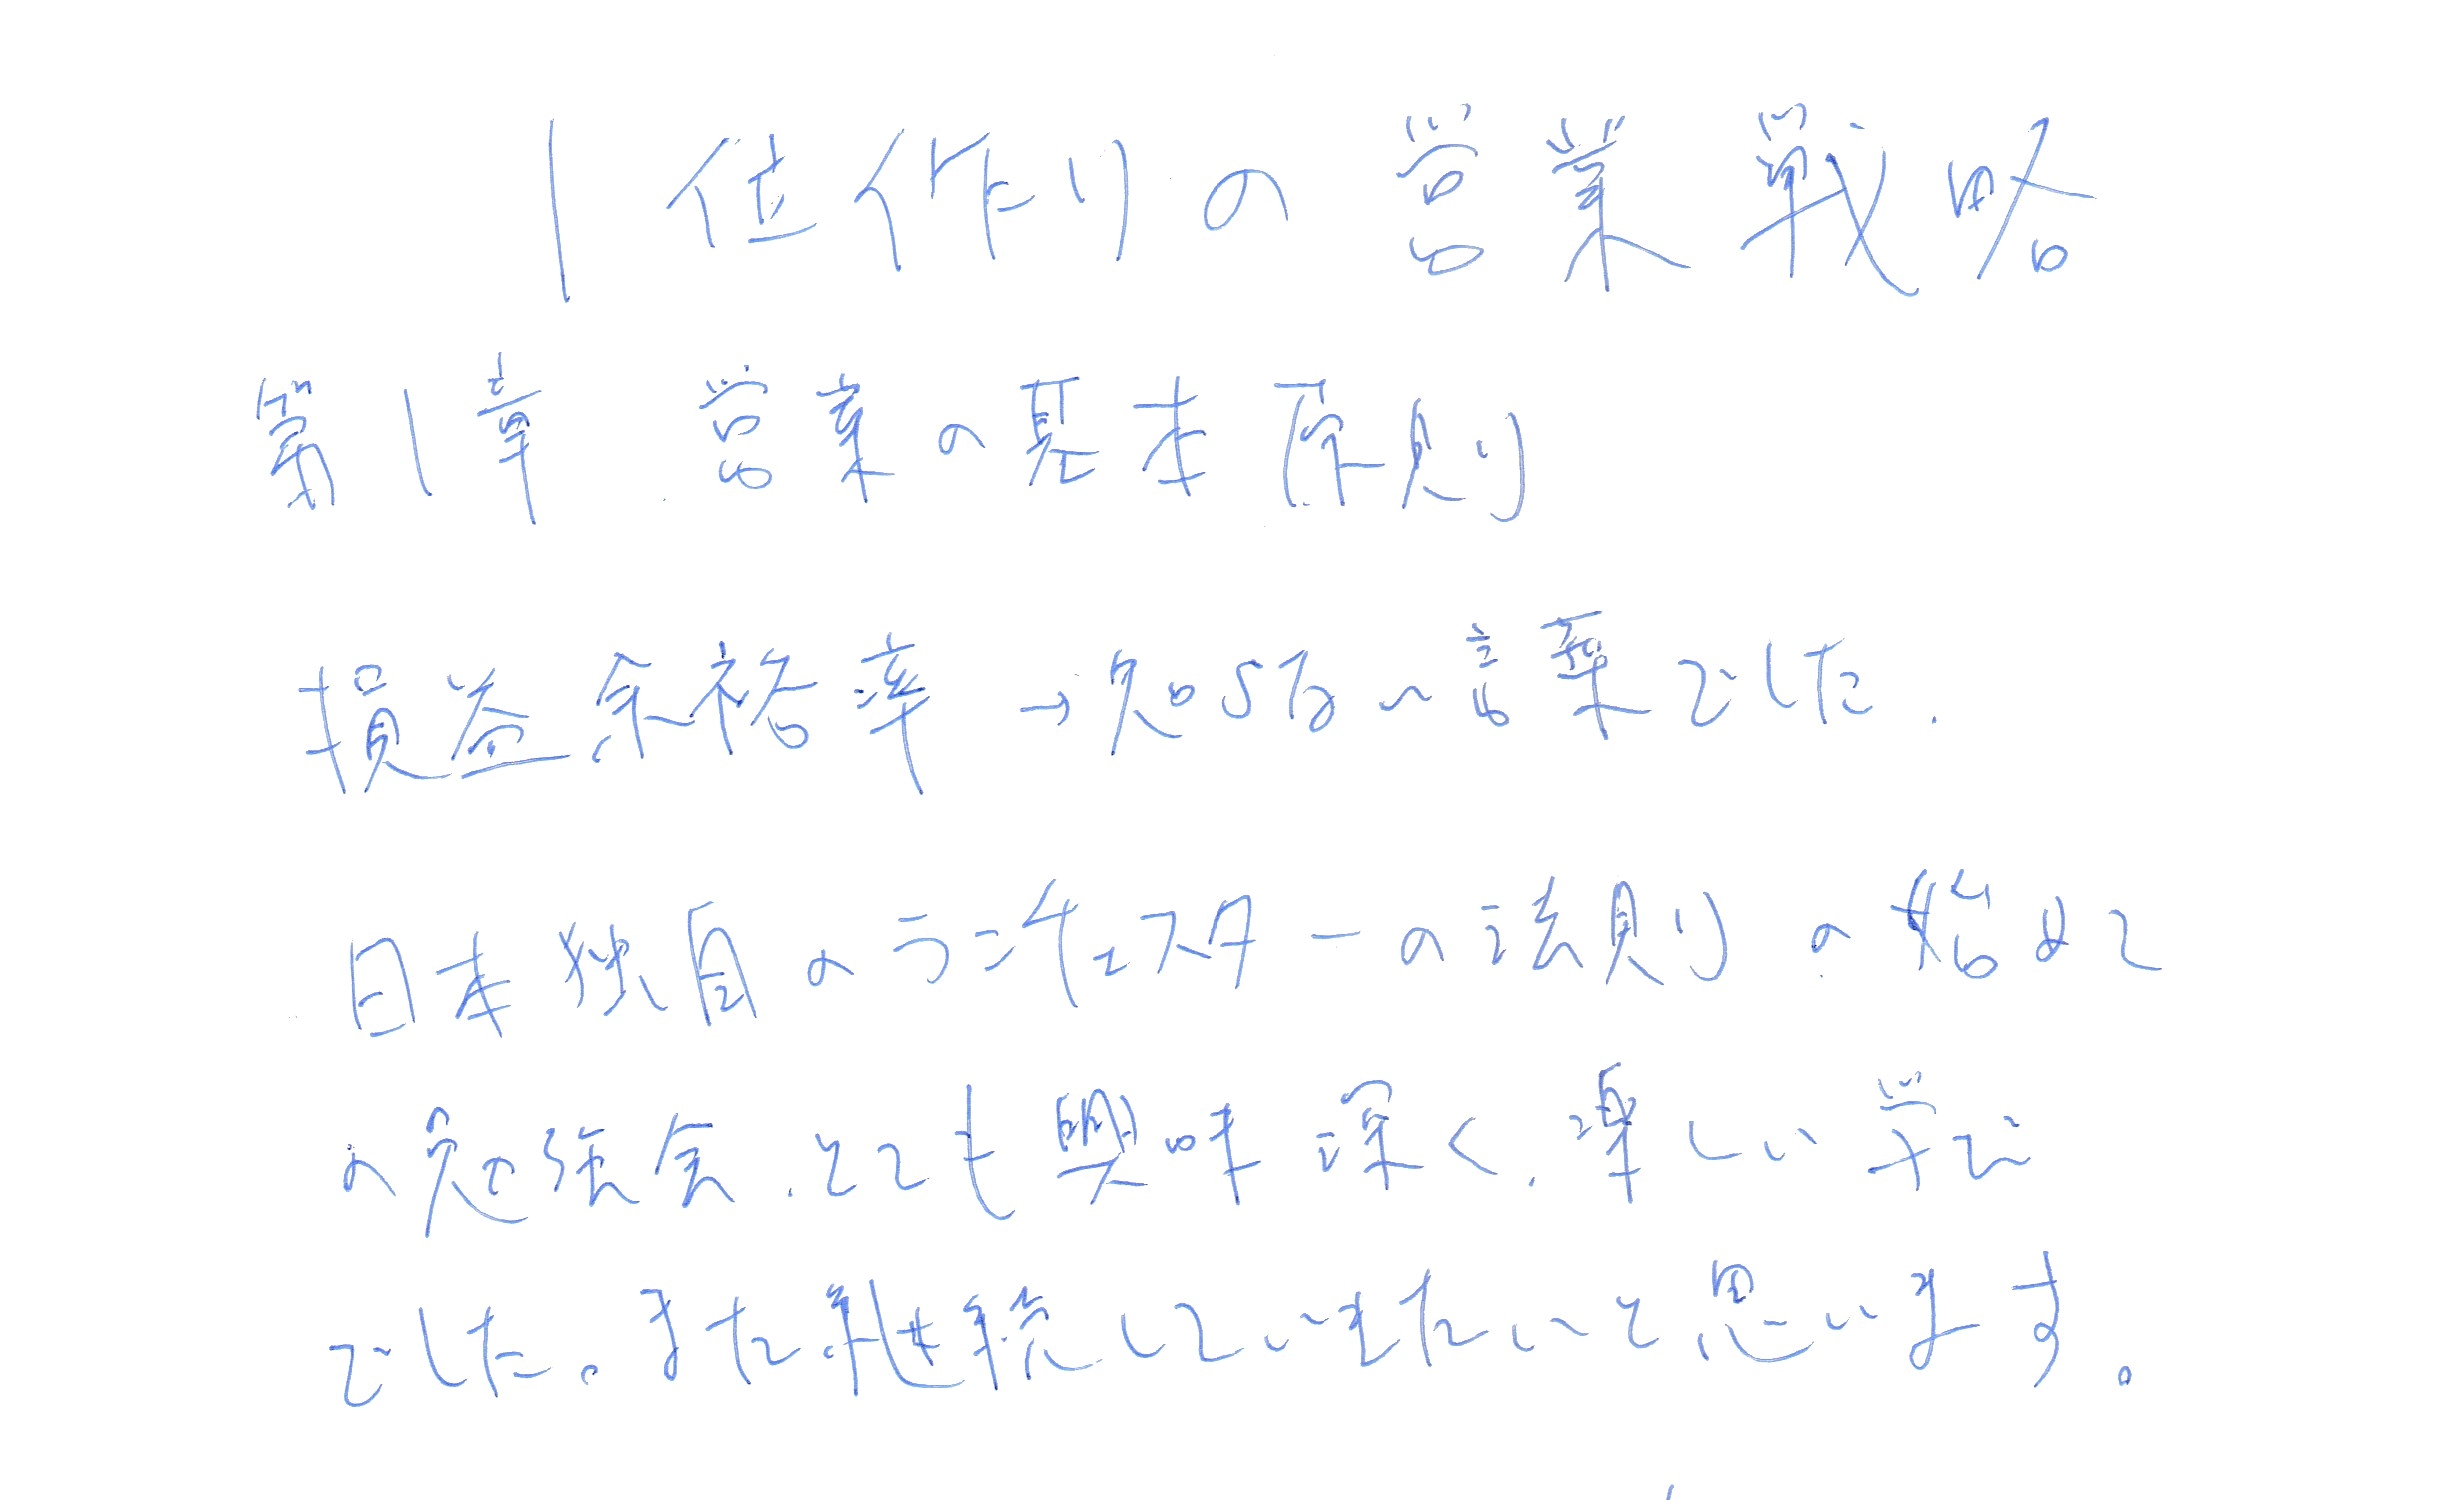 1位作りの営業戦略
第1章 営業の基本原則
損益余裕率→知らない言葉でした.
日本独自のランチェスターの法則の始めて
の勉強会.とても興味深く.楽しい学び
でした。また継続していきたいと思います。